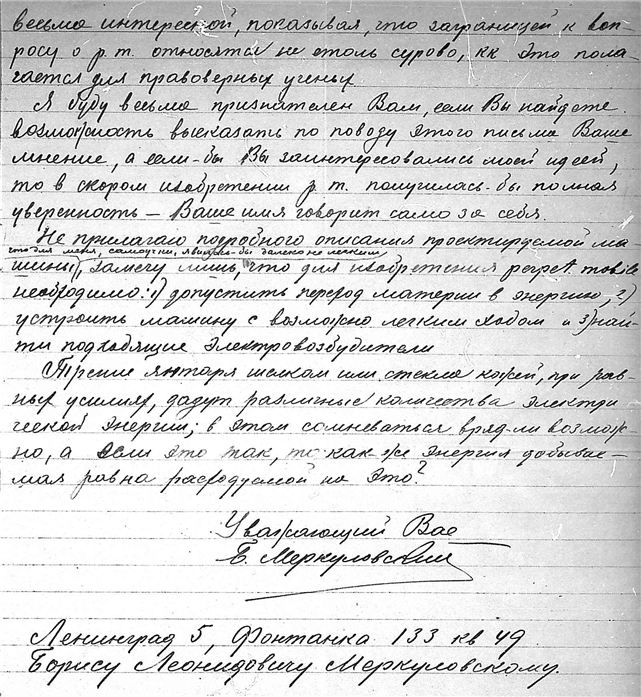 весьма интересной, показывая, что заграницей к воп-
росу о р.т. относятся не столь сурово, кк это пола-
гается для правоверных ученых.
Я буду весьма признателен Вам, если Вы найдете
возможность высказать по поводу этого письма Ваше
мнение, а если-бы Вы заинтересовались моей идеей,
то в скором изобретении р.т. получилась-бы полная
уверенность — Ваше имя говорит само за себя.
Не прилагаю подробного описания проектируемой ма
что для меня, самоучки, явилось-бы далеко не легким
шины), замечу лишь, что для изобретения perpet. mobile
необходимо: 1) допустить переход материи в энергию, 2)
устроить машину с возможно легким ходом и 3) най-
ти подходящие электровозбудители
Трение янтаря шелком или стекла кожей, при рав-
ных усилиях, дадут различные количества электри
ческой энергии; в этом сомневаться вряд-ли возмож-
но, а если это так, то как же энергия добывае-
мая равна расходуемой на это?
Уважающий Вас
Б. Меркуловский
Ленинград 5, Фонтанка 133 кв 49
Борису Леонидовичу Меркуловскому.